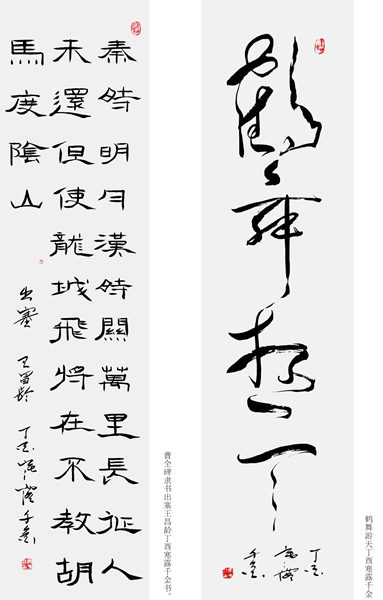 秦時明月漢時關萬里長征人
未還但使龍城飛將在不教胡
馬度陰山
出塞 王昌龄 丁酉寒露千金
曹全碑隶书出塞王昌龄丁酉寒露千金书。
鶴舞游天
丁酉
寒露
千金
鹤舞游天丁酉寒露千金